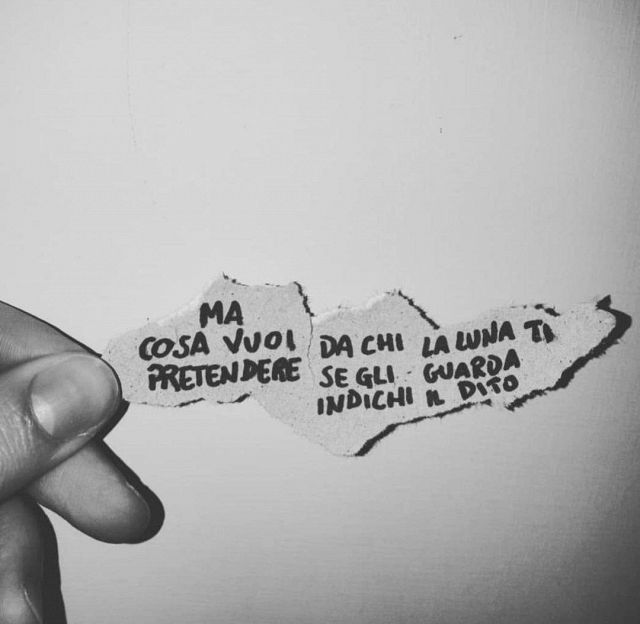 MA
COSA VUOI
PRETENDERE
DA CHI
SE GLI
INDICHI
LA LUNA TI
GUARDA
IL DITO